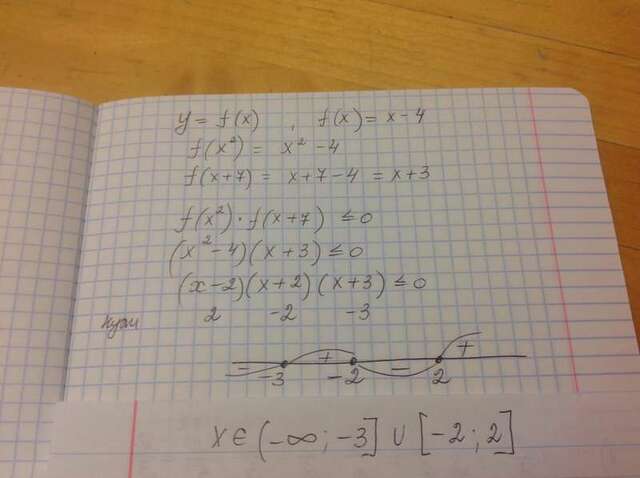 y = f(x) , f(x) = x-4
f(x²) = x² - 4
f(x+7) = x+7-4 = x+3
f(x²) · f(x+7) ≤ 0
(x² - 4)(x + 3) ≤ 0
(x-2)(x+2)(x+3) ≤ 0
нули 2 -2 -3
- + - +
-3 -2 2
x ∈ (-∞; -3] ∪ [-2; 2]